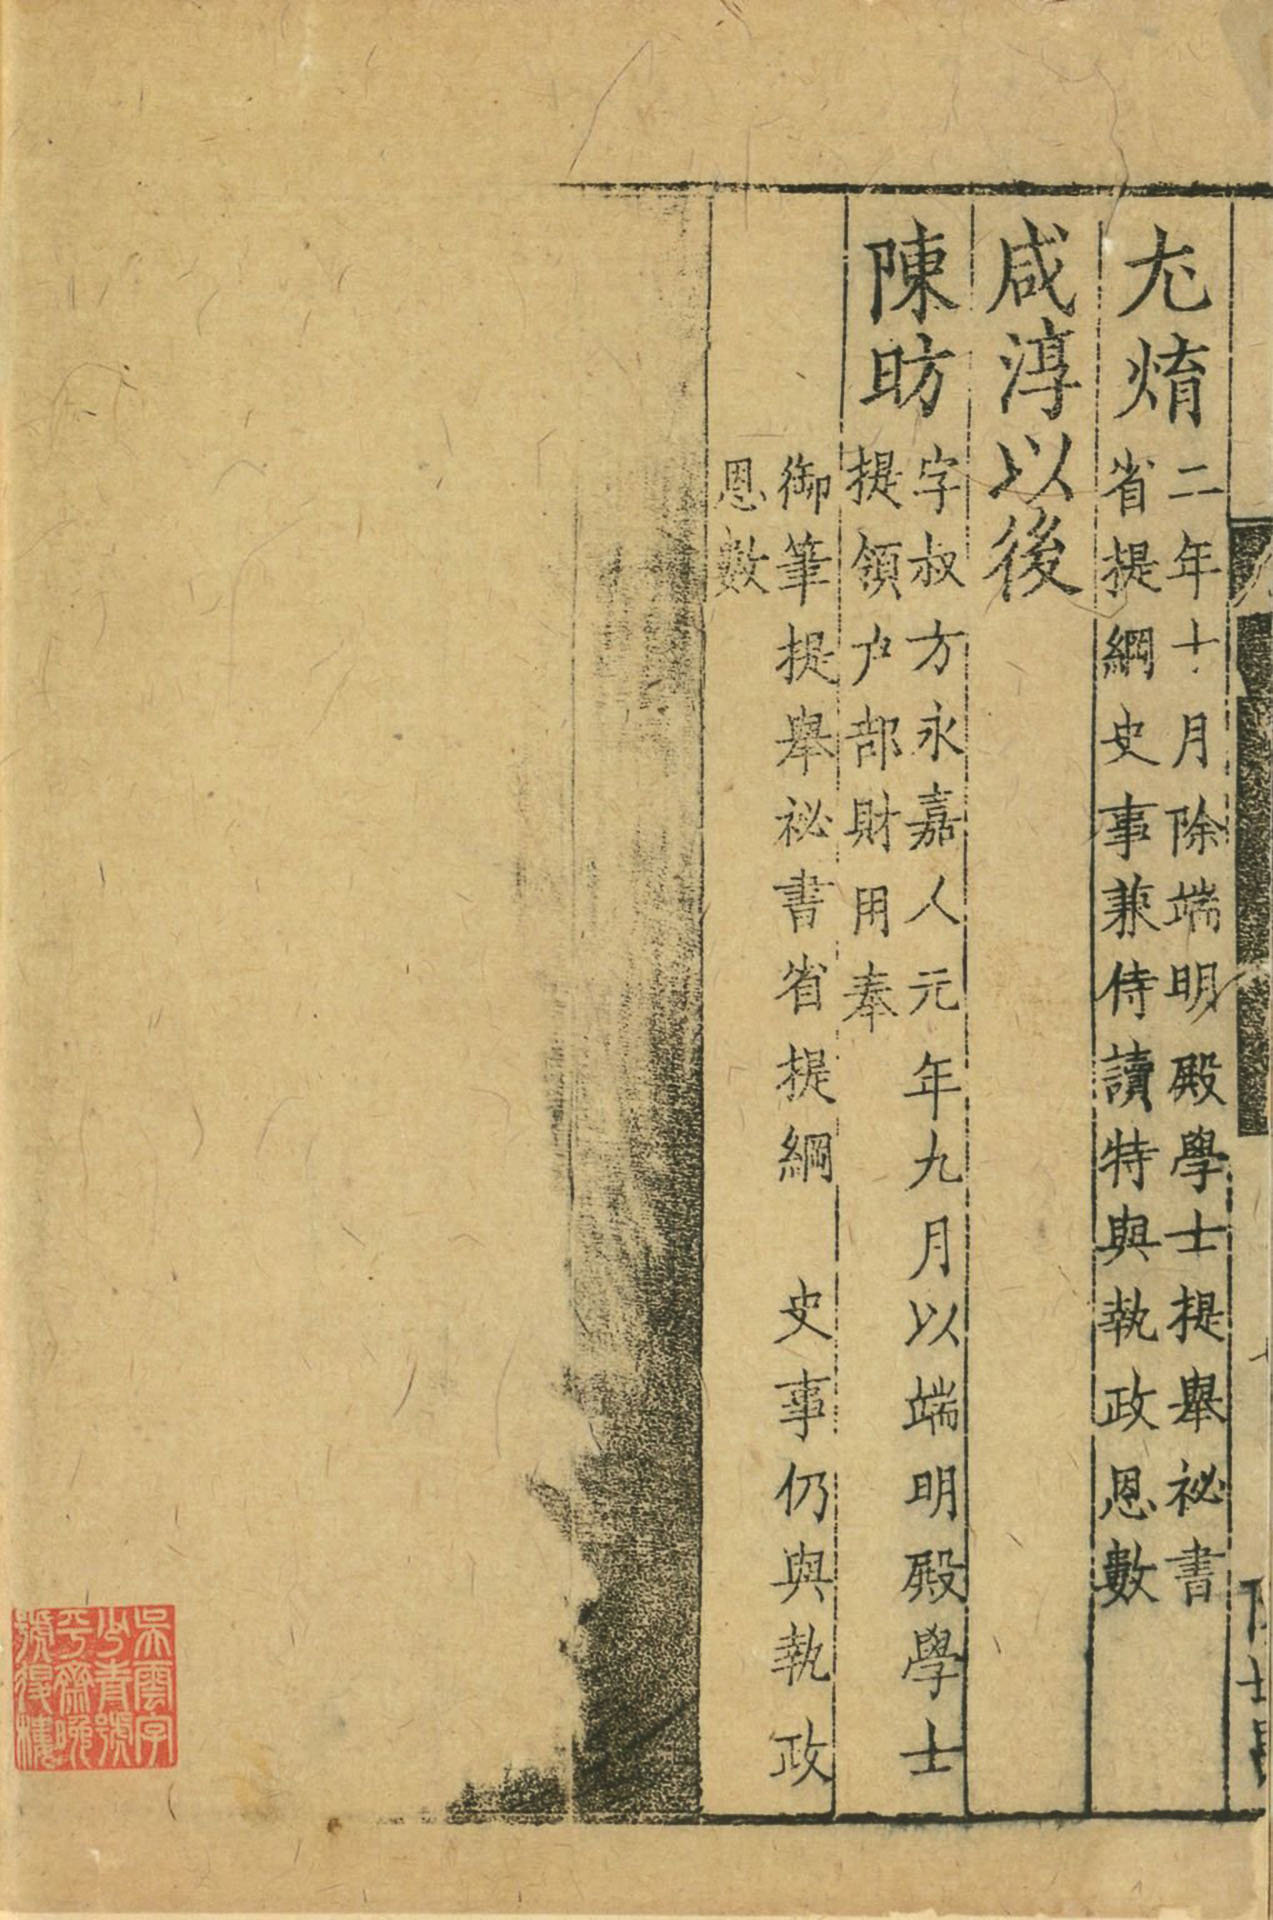 尤焴
二年十月除端明殿學士提舉祕書
省提綱史事兼侍讀特與執政恩數
咸淳以後
陳昉
字叔方永嘉人元年九月以端明殿學士
提領户部財用奉
御筆提舉祕書省提綱　史事仍與執政
恩數
吳雲字
少青號
平齋晚
號退樓